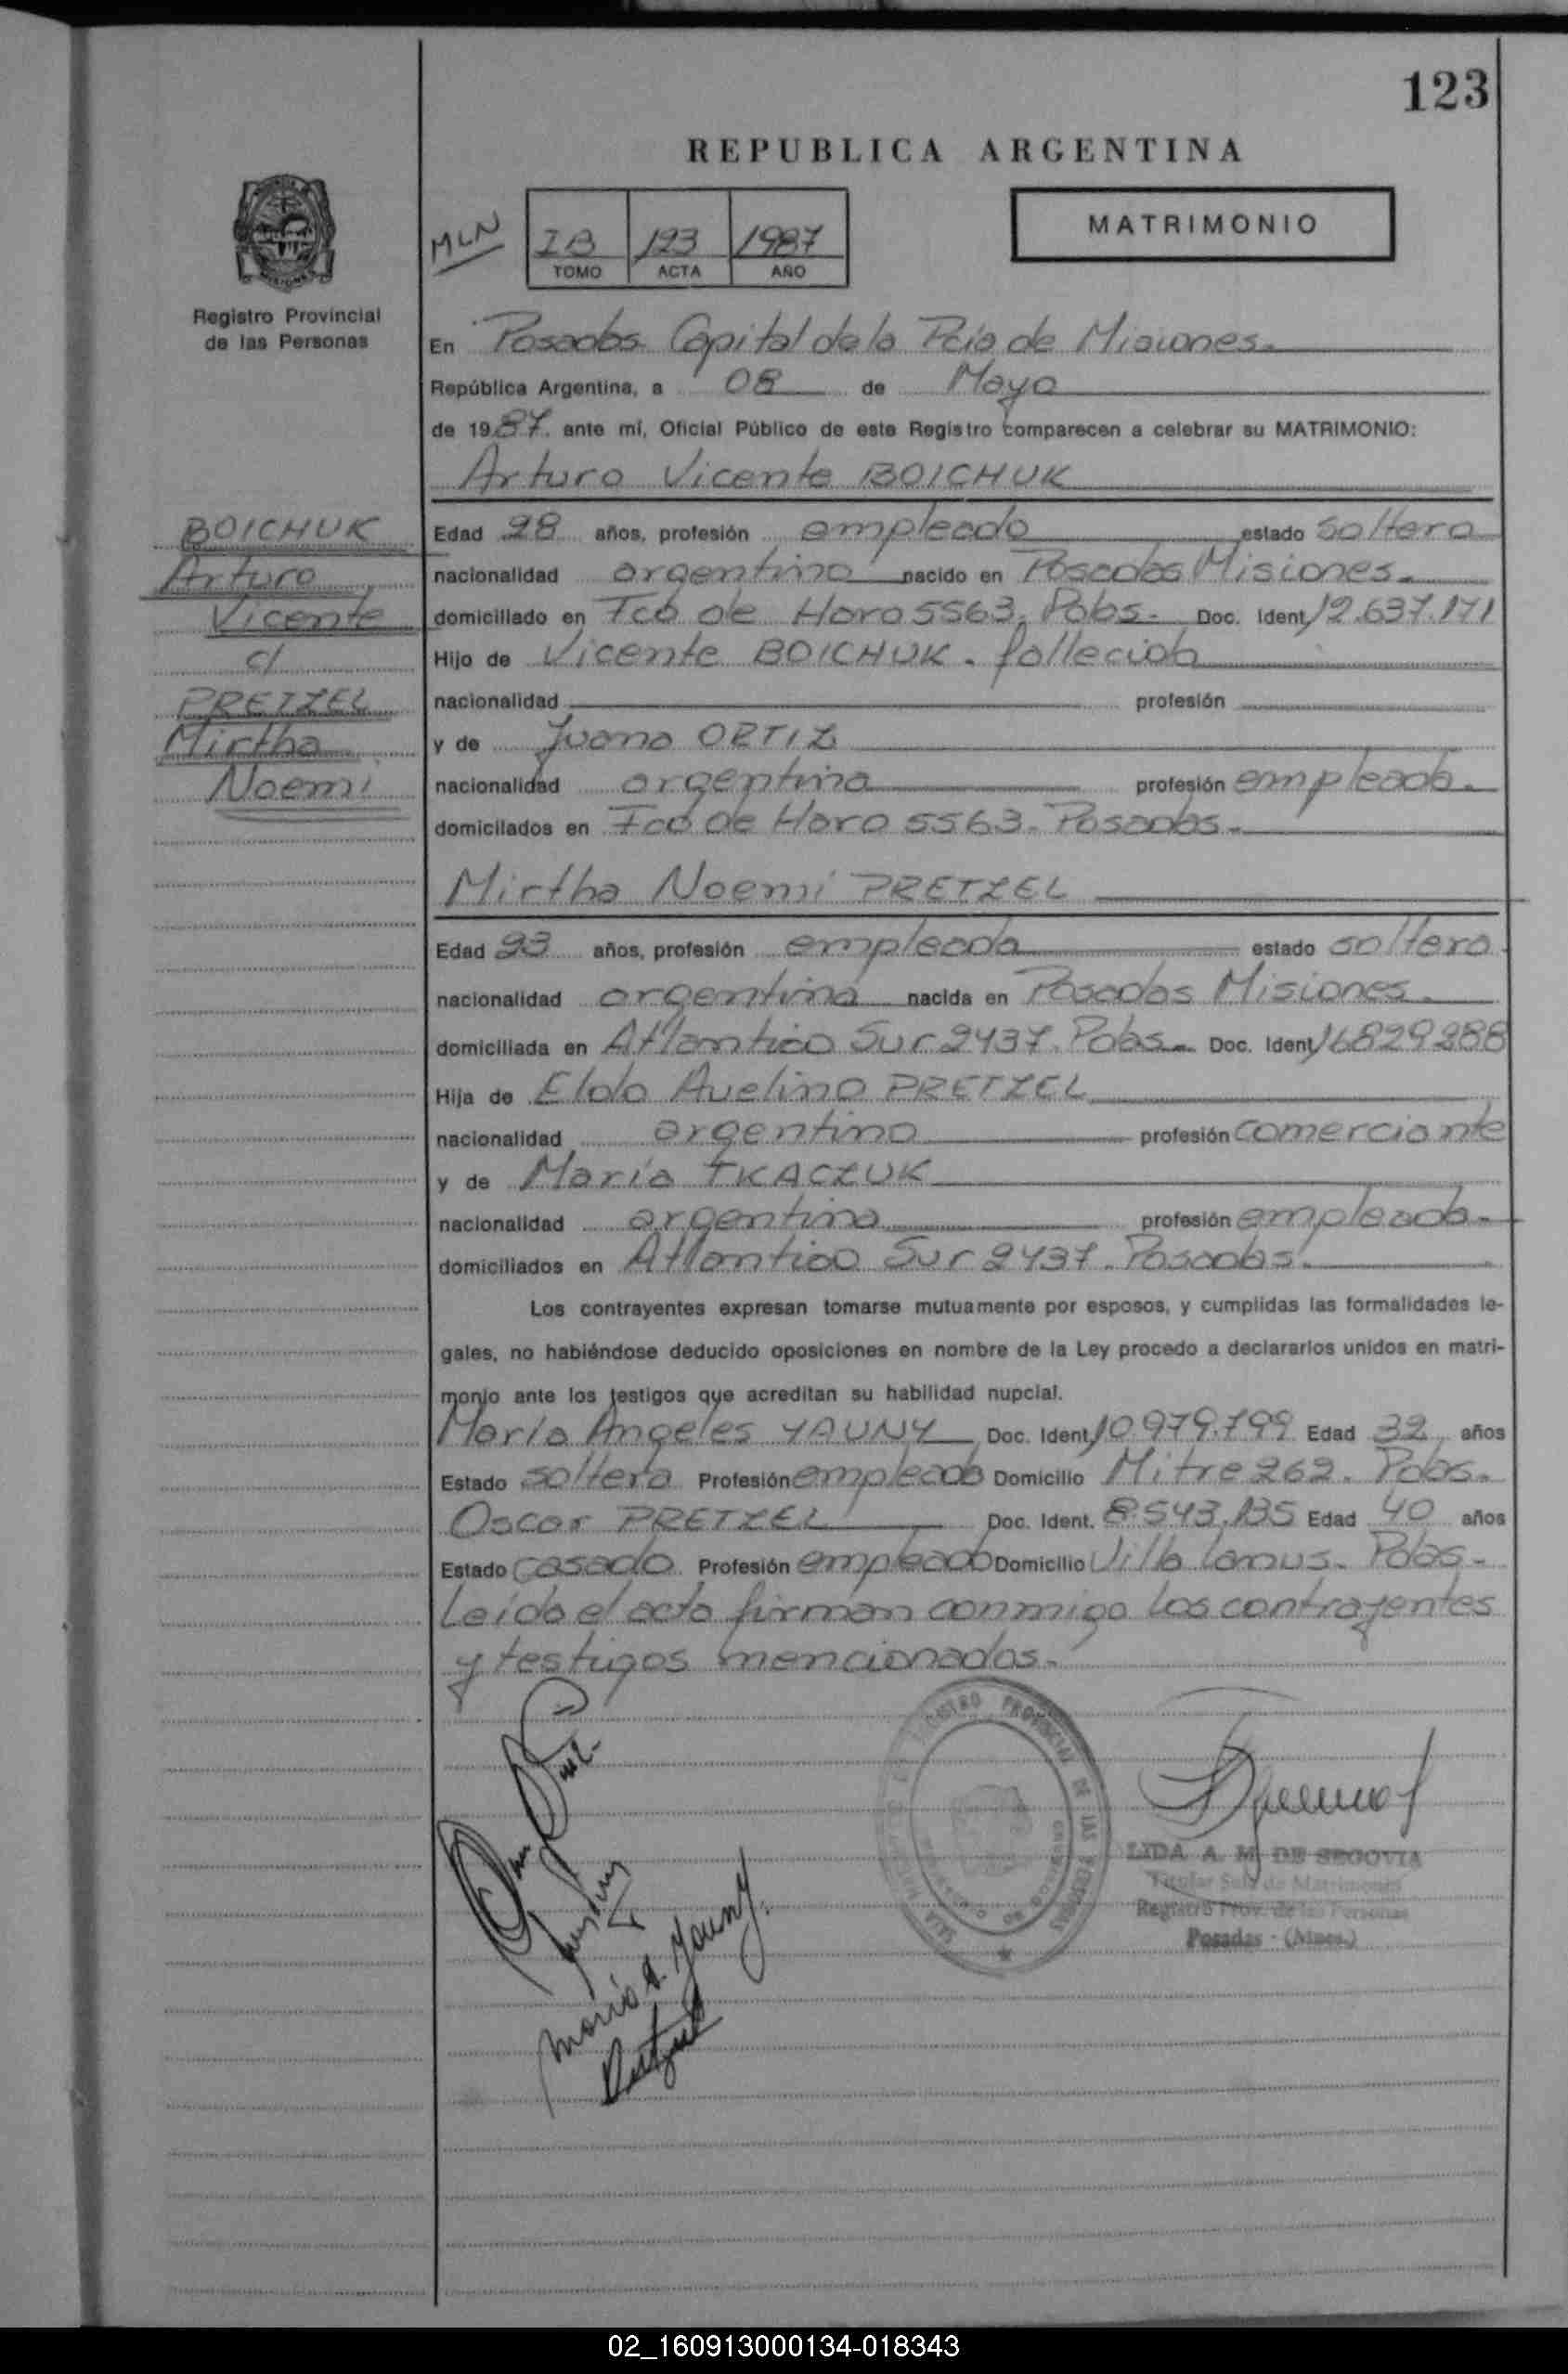 123
REPUBLICA ARGENTINA
MLN
I B 123 1987
TOMO ACTA AÑO
MATRIMONIO
Registro Provincial
de las Personas
En Posadas Capital de la Pcia de Misiones.
República Argentina, a 08 de Mayo
de 1987. ante mí, Oficial Público de este Registro comparecen a celebrar su MATRIMONIO:
Arturo Vicente BOICHUK
BOICHUK
Arturo
Vicente
c/
PRETZEL
Mirtha
Noemi
Edad 28 años, profesión empleado estado soltero
nacionalidad argentino nacido en Posadas Misiones.
domiciliado en Fco de Haro 5563. Pdas. Doc. Ident. 12.637.171
Hijo de Vicente BOICHUK. fallecido
nacionalidad profesión
y de Juana ORTIZ
nacionalidad argentina profesión empleada.
domiciliados en Fco de Haro 5563. Posadas.
Mirtha Noemi PRETZEL
Edad 23 años, profesión empleada estado soltera.
nacionalidad argentina nacida en Posadas Misiones.
domiciliada en Atlantico Sur 2437. Pdas. Doc. Ident. 16829288
Hija de Eldo Avelino PRETZEL
nacionalidad argentino profesión comerciante
y de María TKACZUK
nacionalidad argentina profesión empleada.
domiciliados en Atlantico Sur 2437. Posadas.
Los contrayentes expresan tomarse mutuamente por esposos, y cumplidas las formalidades le-
gales, no habiéndose deducido oposiciones en nombre de la Ley procedo a declararlos unidos en matri-
monio ante los testigos que acreditan su habilidad nupcial.
María Angeles YAUNY Doc. Ident. 10.979.799 Edad 32 años
Estado soltera Profesión empleada Domicilio Mitre 262. Pdas.
Oscar PRETZEL Doc. Ident. 8.543.135 Edad 40 años
Estado casado Profesión empleado Domicilio Villa Lanus. Pdas.
Leída el acta firman conmigo los contrayentes
y testigos mencionados.
REGISTRO PROVINCIAL DE LAS PERSONAS
María A. Yauny.
LIDA A. M. DE SEGOVIA
Titular Sala de Matrimonio
Registro Prov. de las Personas
Posadas - (Mnes.)
02_160913000134-018343